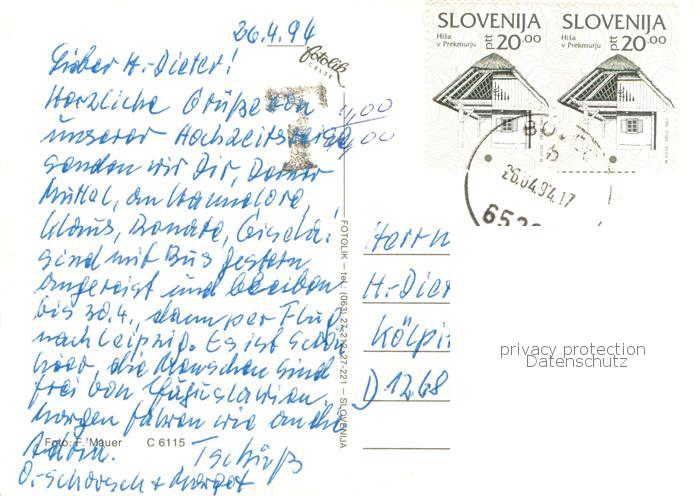 26.4.94
Lieber H.-Dieter!
Herzliche Grüße von
unserer Hochzeitsreise
senden wir Dir, Deiner
Mutti, an Hannelore,
Klaus, Renate, Gisela!
sind mit Bus gestern
angereist und bleiben
bis 30.4., dann per Flug
nach Leipzig. Es ist schön
hier, die Menschen sind
frei von Jugoslawien.
Morgen fahren wir an die
Adria.
Tschüß
O.-Schorsch + Margot
Foto: F. Mauer C 6115
fotolik
CELJE
T
4,00
4,00
FOTOLIK – tel.: (063) 27-212, 27-221 – SLOVENIJA
SLOVENIJA
Hiša
v Prekmurju
ptt 20.00
SLOVENIJA
Hiša
v Prekmurju
ptt 20.00
26.04.94.17
Herrn
H.-Dier
Kölpi
D 1268
privacy protection
Datenschutz